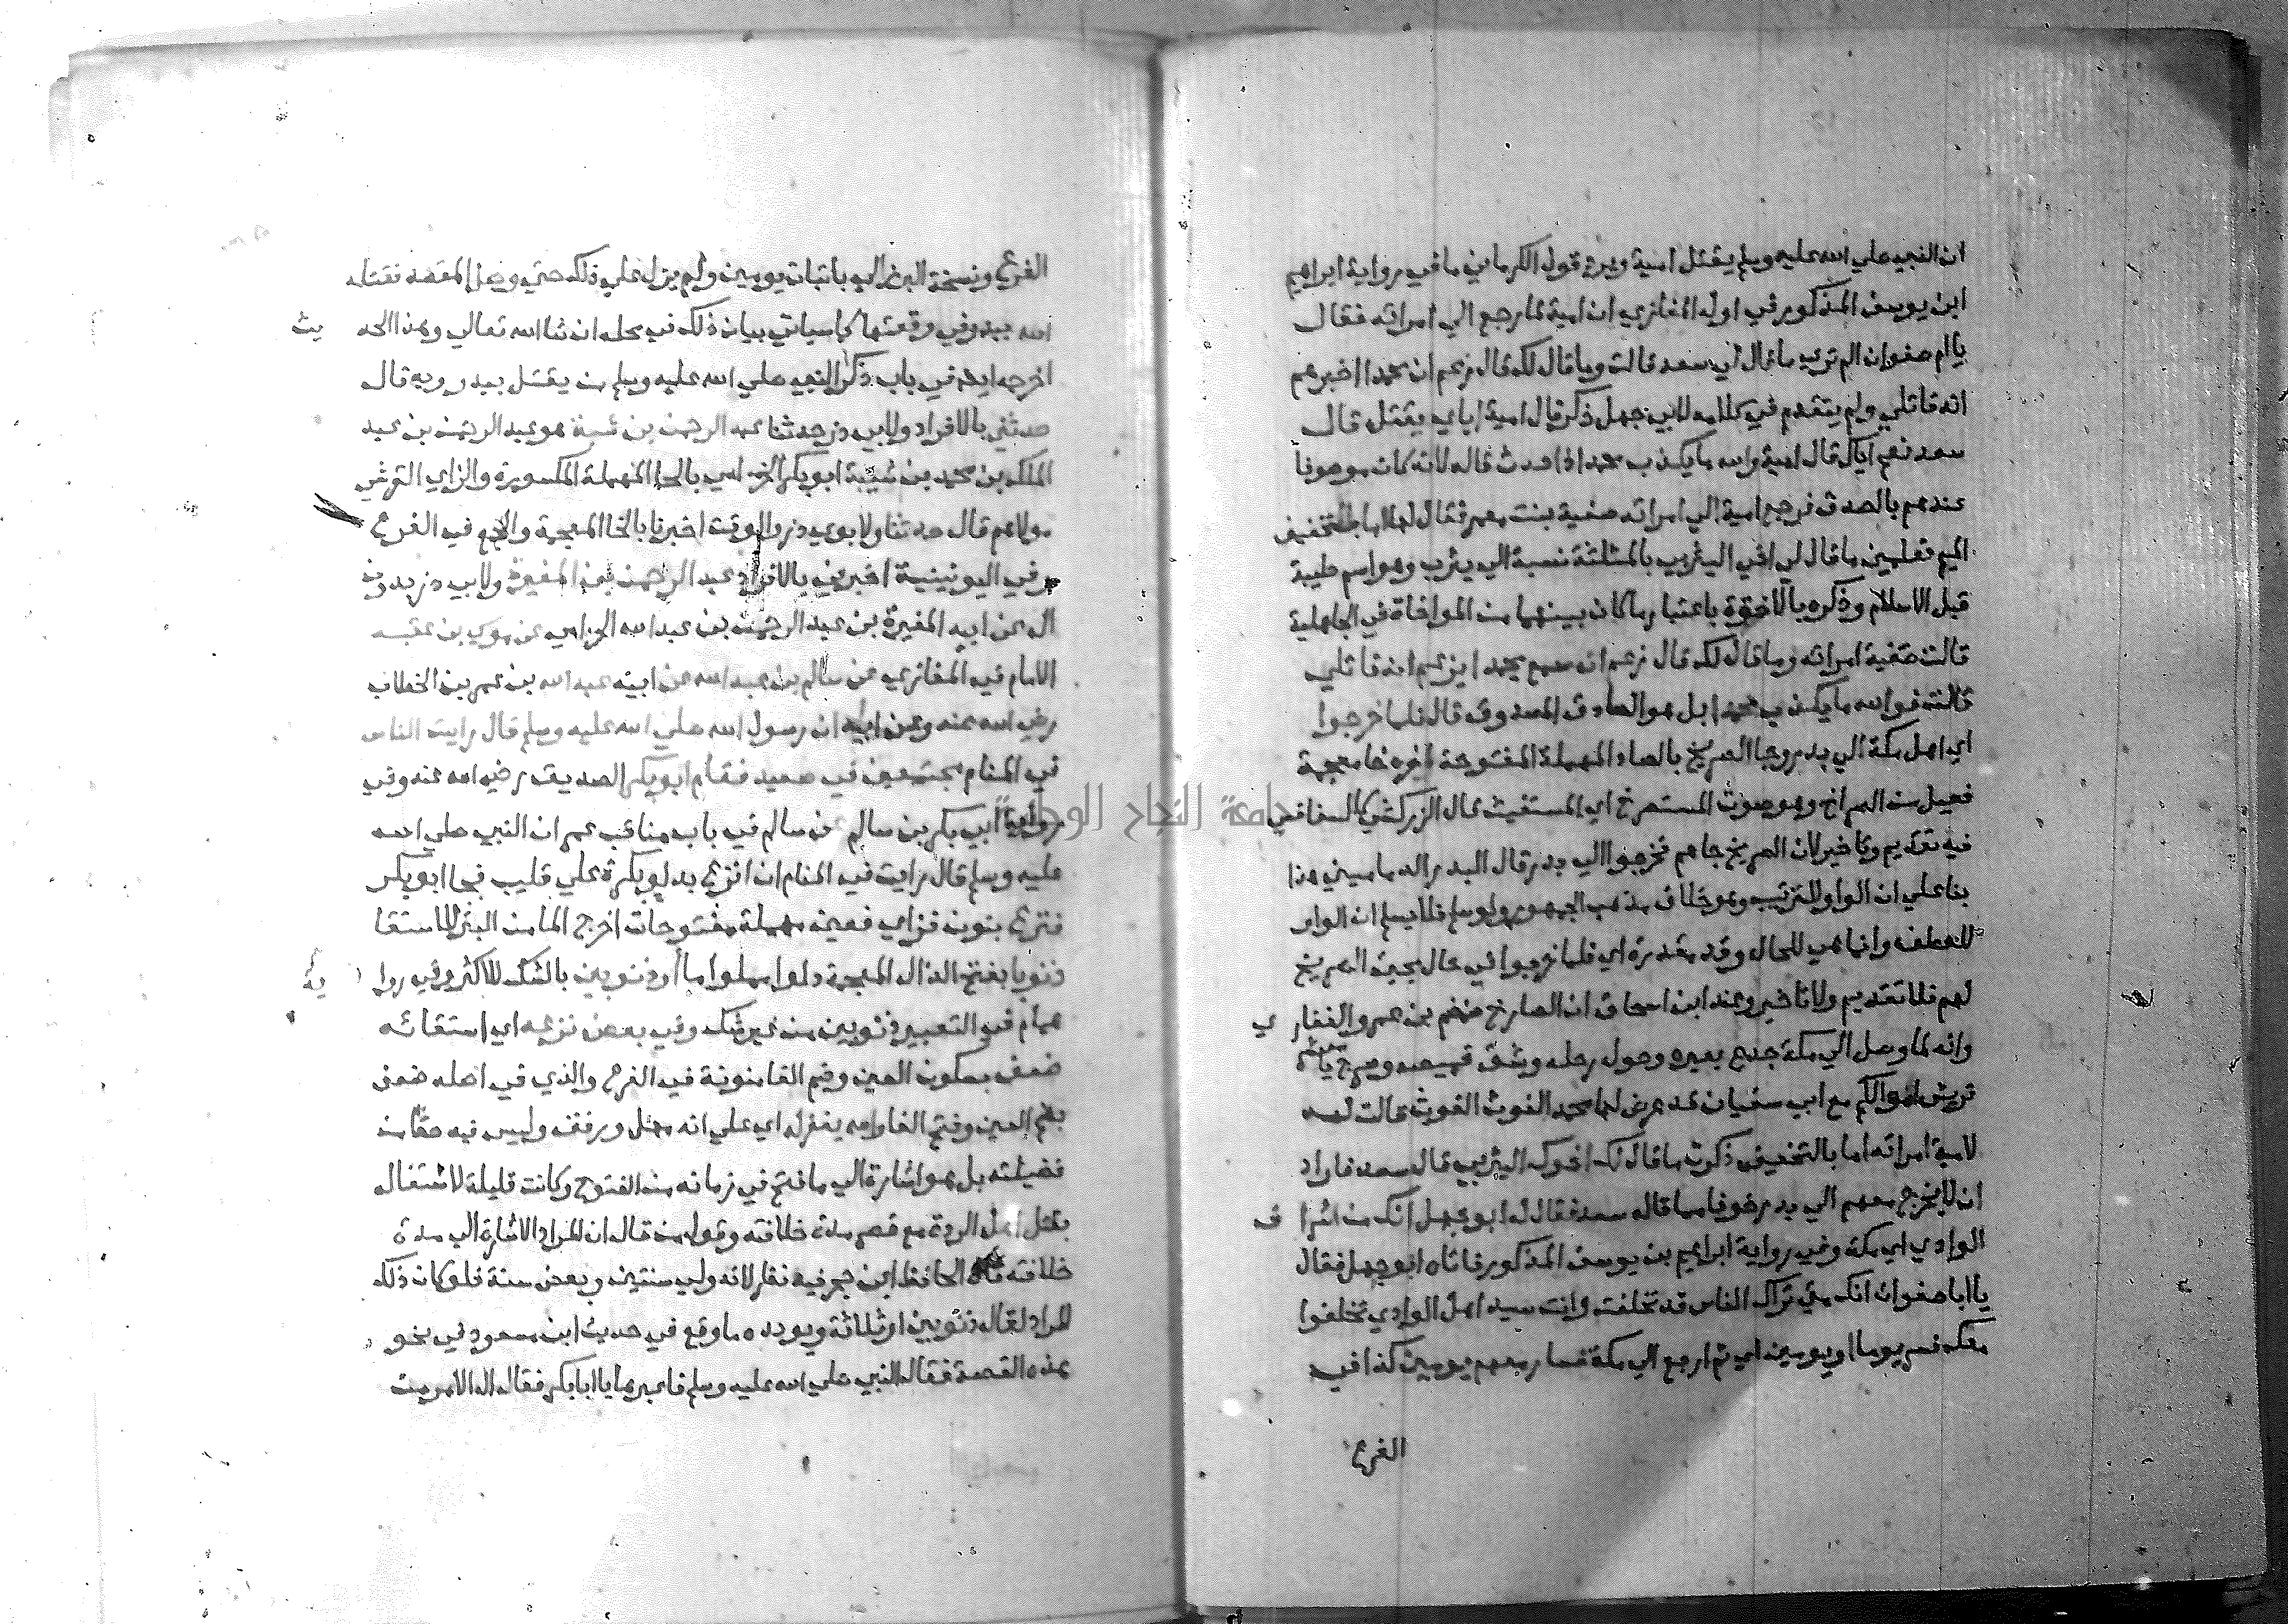 ان النبي صلي الله عليه وسلم يقتل امية ويرد قول الكرماني ما في رواية ابراهيم
ابن يوسف المذكور في اول المغازي ان امية لما رجع الي امراته فقال
يا ام صفوان الم تري ما قال لي سعد قالت وما قال لك قال زعم ان محمدا اخبرهم
انه قاتلي ولم يتقدم في كلامه لابي جهل ذكر قال امية اياي يقتل قال
سعد نعم اياك قال امية والله ما يكذب محمد اذا حدث قاله لانه كان موصوفا
عندهم بالصدق فرجع امية الي امراته صفية بنت معمر فقال لها اما بالتخفيف
الميم تعلمين ما قال لي اخي اليثربي بالمثلثة نسبة الي يثرب وهو اسم طيبة
قبل الاسلام وذكره بالاخوة باعتبار ما كان بينهما من المواخاة في الجاهلية
قالت صفية امراته وما قال لك قال زعم انه سمع محمدا يزعم انه قاتلي
قالت فوالله ما يكذب محمد بل هو الصادق المصدوق قال فلما خرجوا
اي اهل مكة الي بدر وجا الصريخ بالصاد المهملة المفتوحة اخره خا معجمة
فعيل من الصراخ وهو صوت المستصرخ اي المستغيث قال الزركشي كالسفاقسي
فيه تقديم وتاخير لان الصريخ جاهم فخرجوا الي بدر قال البدر الدماميني هذا
بنا علي ان الواو للترتيب وهو خلاف مذهب الجمهور ولو سلم فلا يسلم ان الواو
للعطف وانما هي للحال وقد مقدرة اي فلما خرجوا في حال مجيئ الصريخ
لهم فلا تقديم ولا تاخير وعند ابن اسحاق ان الصارخ ضمضم بن عمرو الغفاري
وانه لما وصل الي مكة جدع بعيره وحول رحله وشق قميصه وصرخ يا معشر
قريش اموالكم مع ابي سفيان قد عرض لها محمد الغوث الغوث قالت له
لامية امراته اما بالتخفيف ذكرت ما قال لك اخوك اليثربي قال سعد فاراد
ان لا يخرج معهم الي بدر خوفا مما قاله سعد فقال له ابو جهل انك من اشراف
الوادي اي مكة وفي رواية ابراهيم بن يوسف المذكور فاتاه ابو جهل فقال
يا ابا صفوان انك متي تراك الناس قد تخلفت وانت سيد اهل الوادي تخلفوا
معك فسر يوما او يومين اي ثم ارجع الي مكة فسار معهم يومين كذا في
الفرع
الفرع ونسخة البرزالي باثبات يومين ولم يزل علي ذلك حتي وصل المقصد فقتله
الله ببدر في وقعتها كما سياتي بيان ذلك في محله ان شا الله تعالي وهذا الحديث
اخرجه ايضا في باب ذكر النبي صلي الله عليه وسلم من يقتل ببدر وبه قال
حدثني بالافراد ولابي ذر حدثنا عبد الرحمن بن شيبة هو عبد الرحمن بن عبد
الملك بن محمد بن شيبة ابو بكر الحزامي بالحا المهملة المكسورة والزاي القرشي
مولاهم قال حدثنا ولابوي ذر والوقت اخبرنا بالخا المعجمة والجمع في الفرع
وفي اليونينية اخبرني بالافراد عبد الرحمن بن المغيرة ولابي ذر بدون
ال عن ابيه المغيرة بن عبد الرحمن بن عبد الله الحزامي عن موسي بن عقبه
الامام في المغازي عن سالم بن عبد الله عن ابيه عبد الله بن عمر بن الخطاب
رضي الله عنه وعن ابيه ان رسول الله صلي الله عليه وسلم قال رايت الناس
في المنام مجتمعين في صعيد فقام ابو بكر الصديق رضي الله عنه وفي
رواية ابي بكر بن سالم عن سالم في باب مناقب عمر ان النبي صلي الله
عليه وسلم قال رايت في المنام ان انزع بدلو بكرة علي قليب فجا ابو بكر
فنزع بنون فزاي فعين مهملة مفتوحات اخرج الما من البئر للاستقا
ذنوبا بفتح الذال المعجمة دلوا مملوا ما او ذنوبين بالشك للاكثر وفي رواية
همام في التعبير ذنوبين من غير شك وفي بعض نزعه اي استقائه
ضعف بسكون العين وضم الفا منونة في الفرع والذي في اصله ضعف
بضم العين وفتح الفا والله يغفر له اي علي انه مهل ورفق وليس فيه حط من
فضيلته بل هو اشارة الي ما فتح في زمانه من الفتوح وكانت قليلة لاشتغاله
بقتل اهل الردة مع قصر مدة خلافته وقول من قال ان المراد الاشارة الي مدة
خلافته قال الحافظ ابن حجر فيه نظر لانه ولي سنتين وبعض سنة فلو كان ذلك
المراد لقال ذنوبين او ثلاثة ويويده ما وقع في حديث ابن مسعود في نحو
هذه القصة فقال النبي صلي الله عليه وسلم فاعبرها يا ابا بكر فقال الي الامر من
جامعة النجاح الوطنية